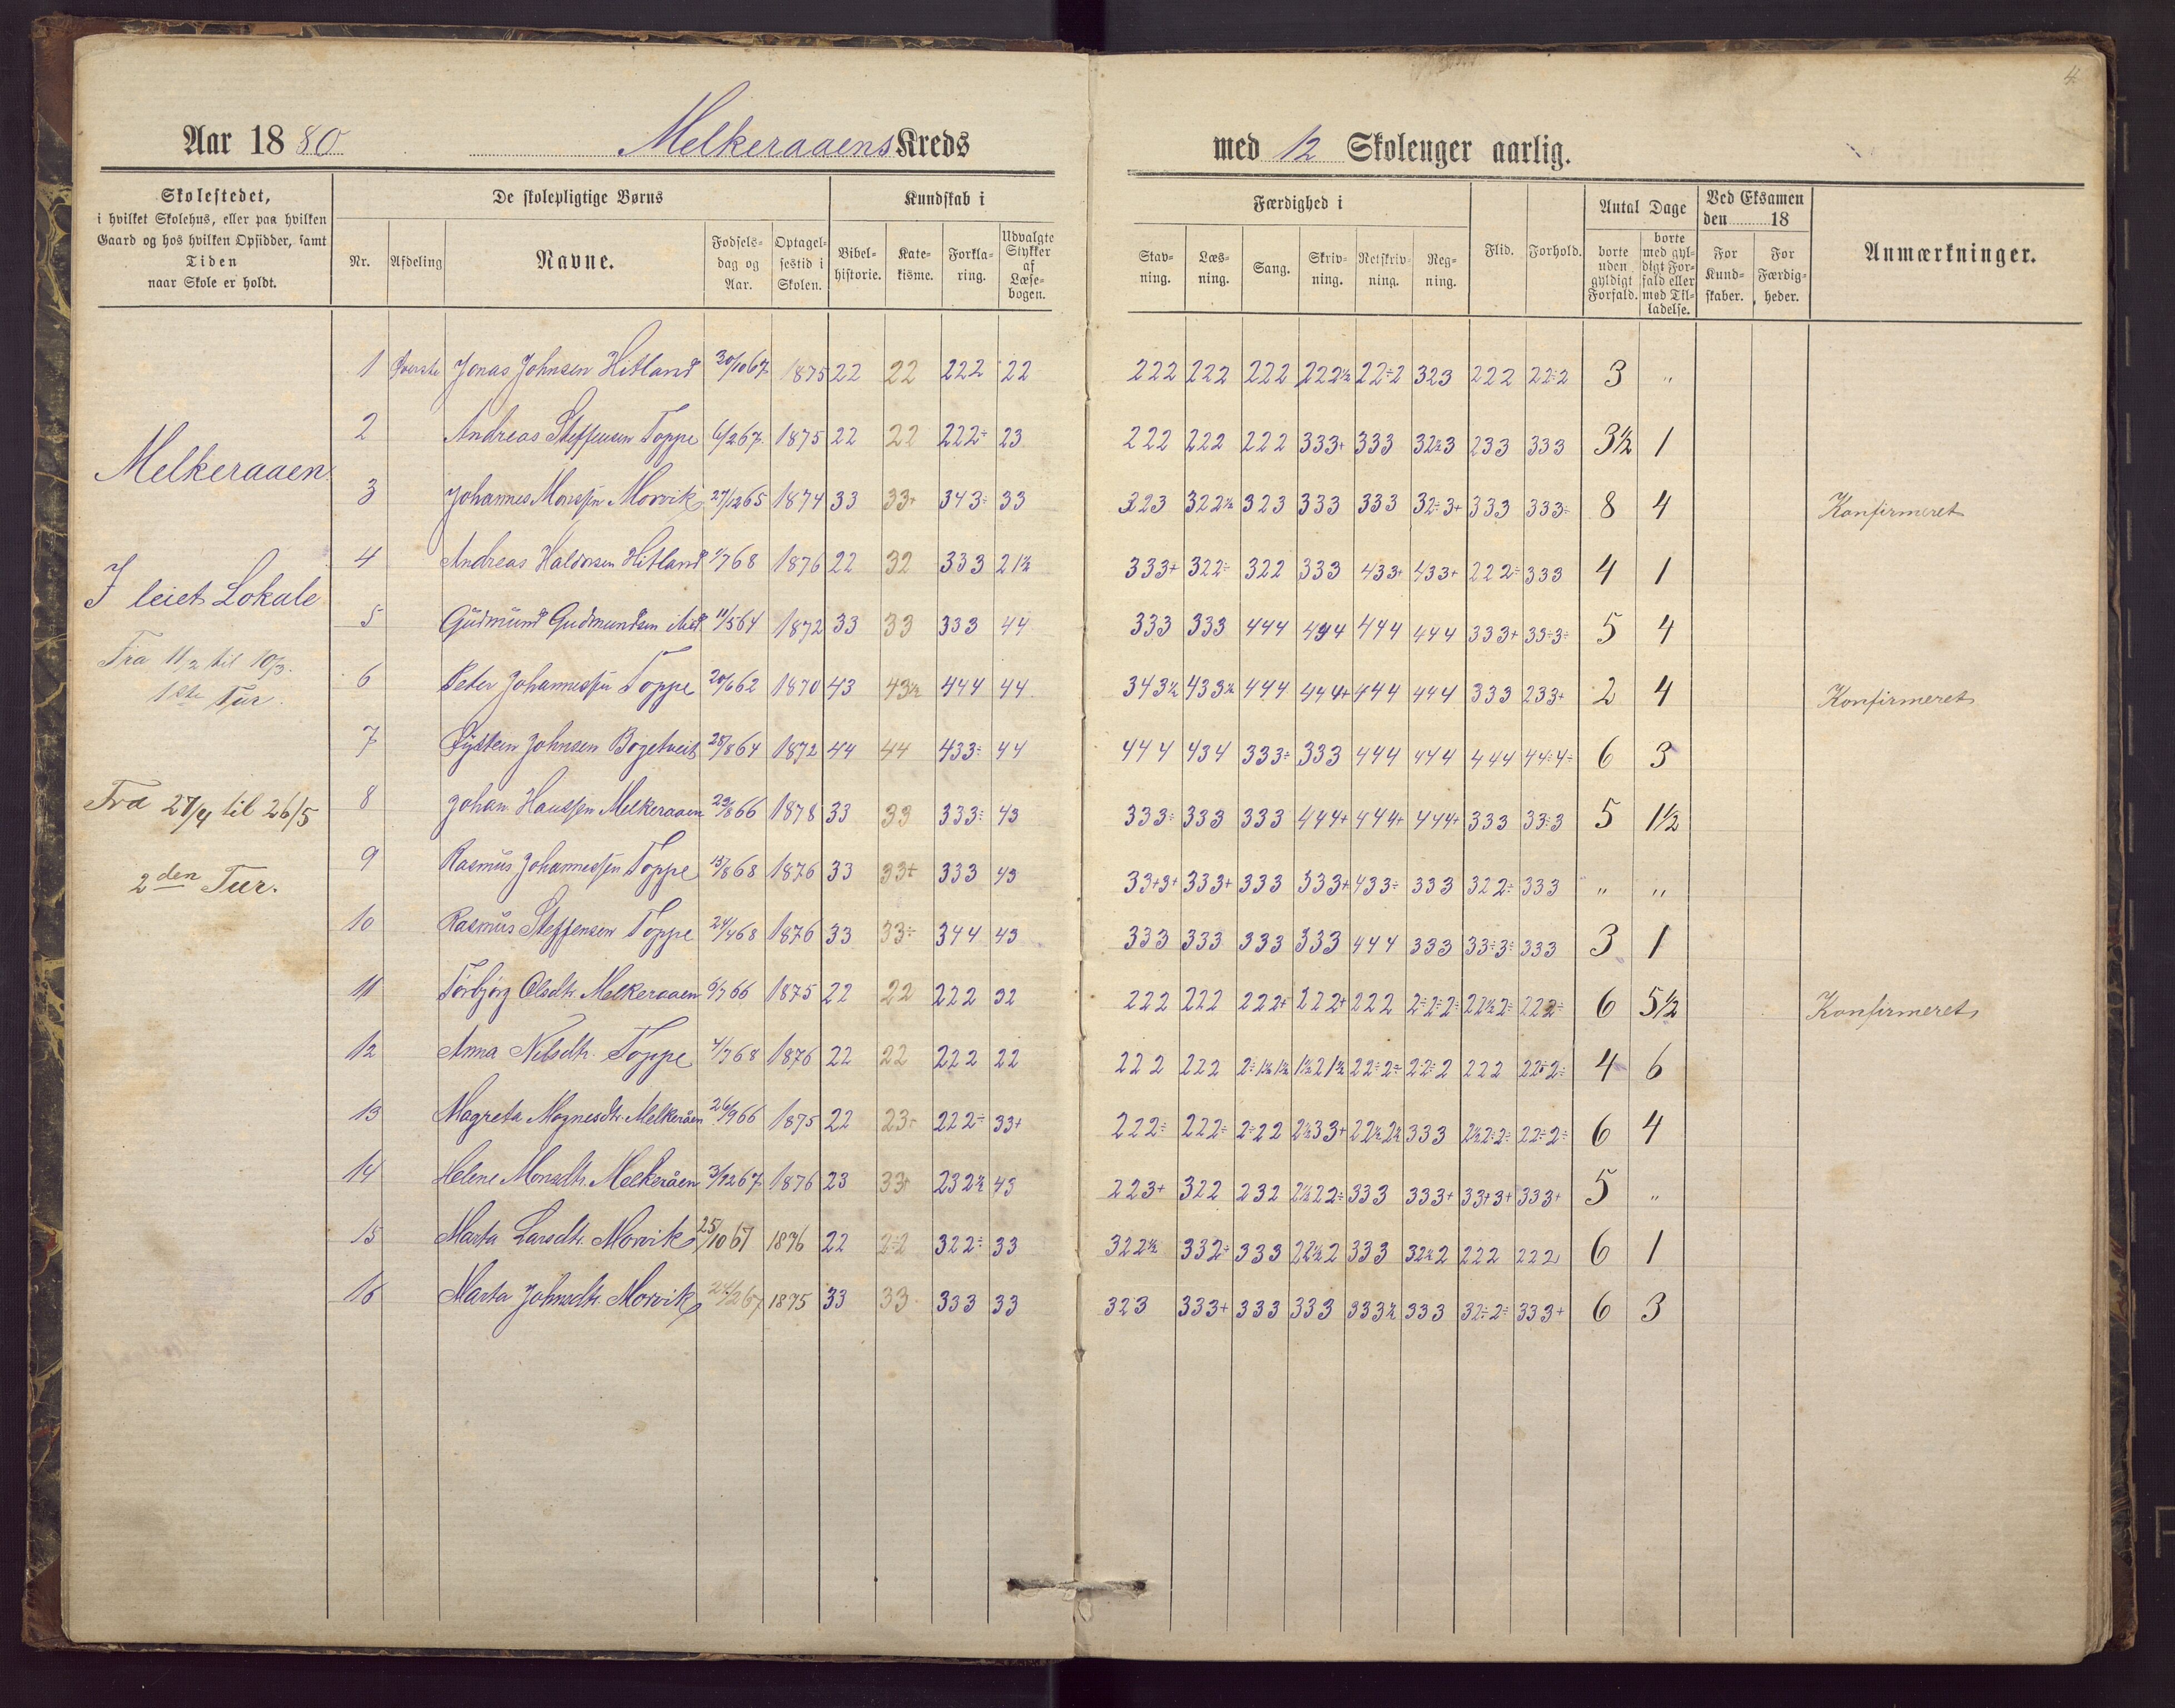 4
Aar 1880 Melkeraaens Kreds med 12 Skoleuger aarlig.
Skolestedet,
i hvilket Skolehus, eller paa hvilken
Gaard og hos hvilken Opsidder, samt
Tiden
naar Skole er holdt.
De skolepligtige Børns
Nr. Afdeling Navne. Fødsels-dag og Aar. Optagel-sestid i Skolen.
Kundskab i
Bibel-historie. Kate-kisme. Forkla-ring. Udvalgte Stykker af Læse-bogen.
Færdighed i
Stav-ning. Læs-ning. Sang. Skriv-ning. Retskriv-ning. Reg-ning. Flid. Forhold.
Antal Dage
borte uden gyldigt Forfald. borte med gyl-digt For-fald eller med Til-ladelse.
Ved Eksamen den 18
For Kund-skaber. For Færdig-heder.
Anmærkninger.
Melkeraaen
I leiet Lokale
Fra 11/2 til 10/3.
1ste Tur.
Fra 27/4 til 26/5
2den Tur.
1 Øverste Jonas Johnsen Hitland 30/10 67 1875 22 22 222 22 222 222 222 222½ 22÷2 323 222 22÷2 3 "
2 Andreas Steffensen Toppe 6/2 67 1875 22 22 222÷ 23 222 222 222 333+ 333 32½3 233 333 3½ 1
3 Johannes Monssen Morvik 27/12 65 1874 33 33+ 343÷ 33 323 322½ 323 333 333 32÷3+ 333 333÷ 8 4 Konfirmeret
4 Andreas Haldorsen Hitland 1/7 68 1876 22 32 333 21½ 333+ 322÷ 322 333 433+ 433+ 222÷ 333 4 1
5 Gudmund Gudmundsen 11/5 64 1872 33 33 333 44 333 333 444 494 444 444 333+ 33÷3÷ 5 4
6 Peter Johannessen Toppe 20/6 62 1870 43 43½ 444 44 343½ 433½ 444 444+ 444 444 333 233+ 2 4 Konfirmeret
7 Øystein Johnsen Børgetveit 28/8 64 1872 44 44 433÷ 44 444 434 333÷ 333 444 444 444 44÷4÷ 6 3
8 Johan Hanssen Melkeraaen 29/8 66 1878 33 33 333÷ 43 333÷ 333 333 444+ 444+ 444+ 333 33÷3 5 1½
9 Rasmus Johannessen Toppe 15/8 68 1876 33 33+ 333 43 33+3+ 333+ 333 333+ 433÷ 333 322÷ 333 " "
10 Rasmus Steffensen Toppe 24/4 68 1876 33 33÷ 344 43 333 333 333 333 444 333 33÷3÷ 333 3 1
11 Torbjørg Olsdtr. Melkeraaen 9/7 66 1875 22 22 222 32 222 222 222+ 222+ 222 2÷2÷2÷ 22½2÷ 222÷ 6 5½ Konfirmeret
12 Anna Nilsdtr. Toppe 4/7 68 1876 22 22 222 22 222 222 2÷1½1½ 1½21½ 22÷2÷ 22÷2 222 22÷2÷ 4 6
13 Magreta Mognesdtr. Melkeråen 26/9 66 1875 22 23+ 222÷ 33+ 222÷ 222÷ 2÷22 2½33+ 22½2½ 333 2½2÷2÷ 22÷2÷ 6 4
14 Helene Monsdtr. Melkeråen 3/12 67 1876 23 33+ 232½ 43 223+ 322 232 2½22÷ 333 333+ 33+3+ 333+ 5 "
15 Marta Larsdtr. Morvik 25/10 67 1876 22 2÷2 322÷ 33 322½ 332÷ 333 22½2 333 32½2 222 222 6 1
16 Marta Johnsdtr. Morvik 24/2 67 1875 33 33 333 33 323 333+ 333 333 333½ 333 32÷2÷ 333+ 6 3